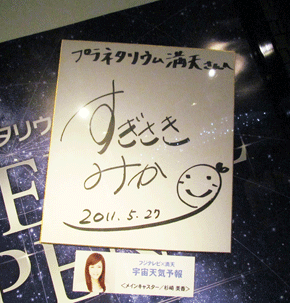 プラネタリウム満天さんへ
すぎさき
みか
2011.5.27
フジテレビ×満天
宇宙天気予報
<メインキャスター/杉崎 美香>
タリウ